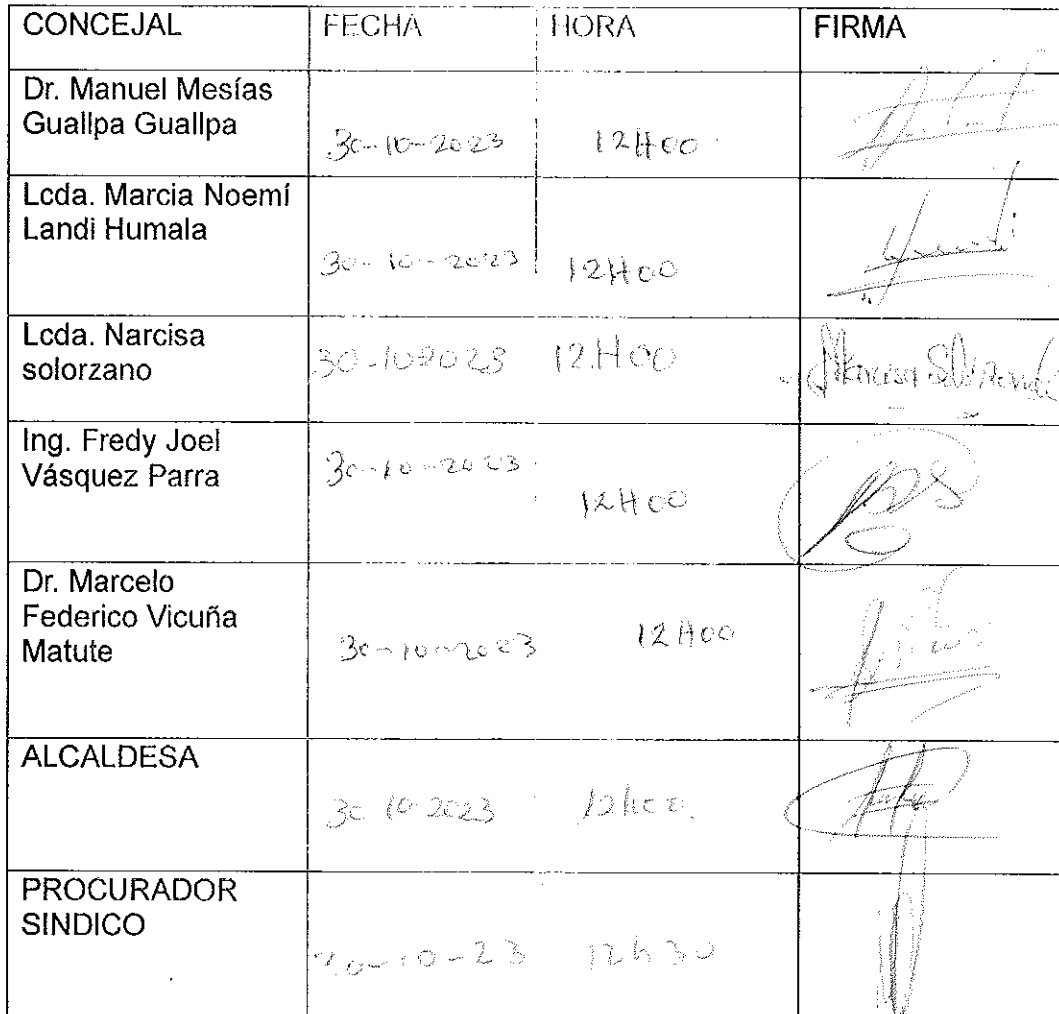 CONCEJAL FECHA HORA FIRMA
Dr. Manuel Mesías
Guallpa Guallpa
30-10-2023 12H00
Lcda. Marcia Noemí
Landi Humala
30-10-2023 12H00
Lcda. Narcisa
solorzano
30-102023 12H00 Narcisa
Ing. Fredy Joel
Vásquez Parra
30-10-2023
12H00
Dr. Marcelo
Federico Vicuña
Matute
30-10-2023 12H00
ALCALDESA
30 10 2023 12h00
PROCURADOR
SINDICO
30-10-23 12h30